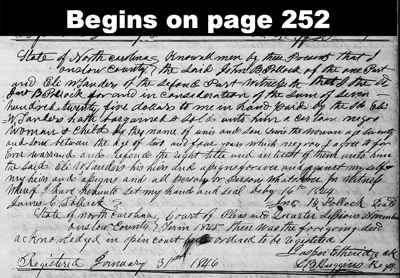 Begins on page 252
State of North carolina Know all men by these Presents that I
onslow County, the Said John B. Pollock of the one Part
and Eli W Sanders of the Second Part Witnesseth that I the Sd
Jno B Pollock for and in Consideration of the Sum of Seven
hundred twenty five dollars to me in hand Paid by the Sd Eli
W Sanders hath bargained & Sold unto him a Certain negro
Woman & Child by the name of and son the woman age twenty
and Son between the age of two and four years which negroes I agree to for
Ever warrand and defend the right title and interest of them unto him
the Said Eli W Sanders his heirs and assigns forever and against my self
my heirs and assigns and all Person or Persons whatsoever In Witness
Whereof I have hereunto Set my hand and Seal Day 16th 1844
James C Pollock Jno B Pollock Seal
State of north Carolina Court of Pleas and Quarter Sessions November
onslow County Term 1845 then was the foregoing deed
acknowledged in open court ordered to be registered
Jasper Etheridge clk
Registered January 31st 1846 Huggins Regr